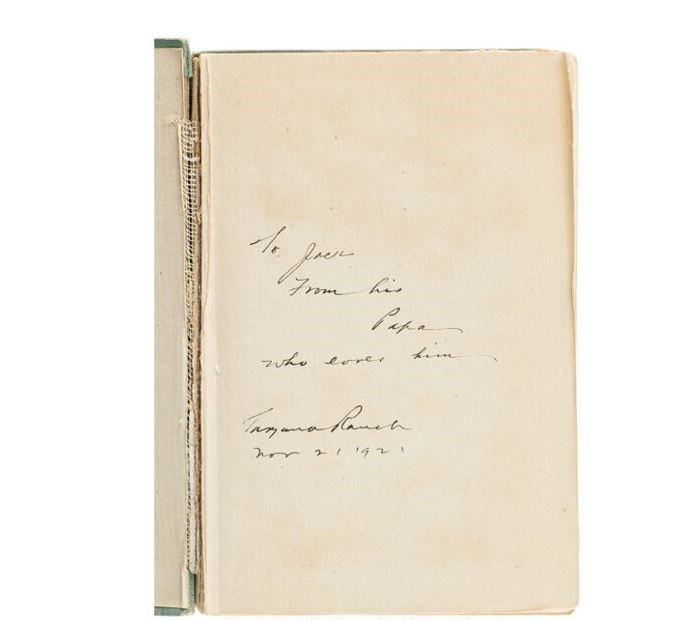 To Jack
From his
Papa
who loves him
Tarzana Ranch
Nov 21 1921